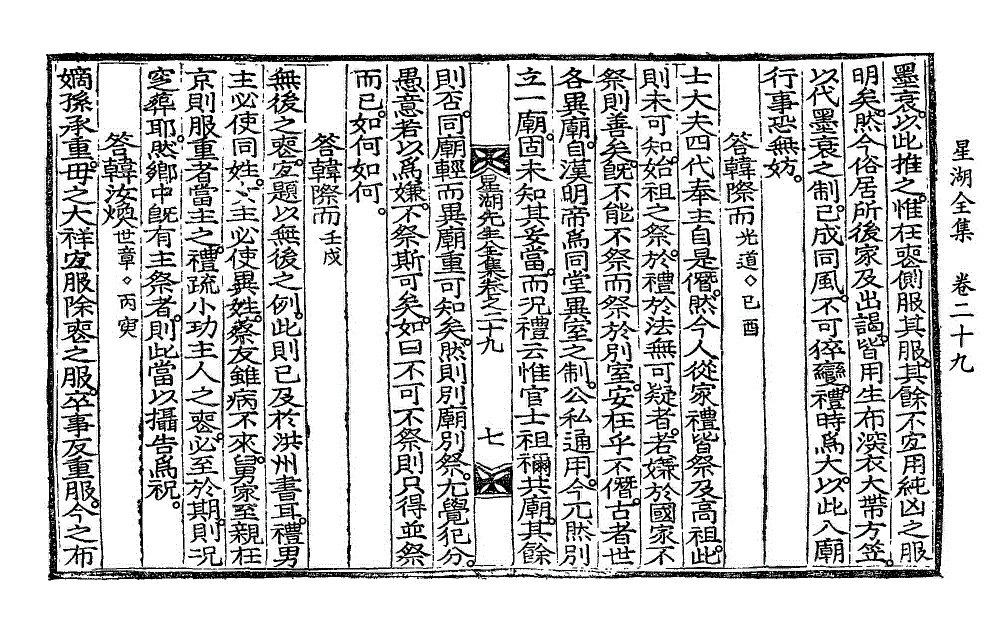 星湖全集 卷二十九
墨衰。以此推之。惟在喪側服其服。其餘不宜用純凶之服
明矣。然今俗居所後家及出謁。皆用生布深衣大帶方笠。
以代墨衰之制。已成同風。不可猝變。禮時爲大。以此入廟
行事恐無妨。
答韓際而 光道○己酉
士大夫四代奉主自是僭。然今人從家禮皆祭及高祖。此
則未可知。始祖之祭。於禮於法無可疑者。若嫌於國家不
祭則善矣。旣不能不祭而祭於別室。安在乎不僭。古者世
各異廟。自漢明帝爲同堂異室之制。公私通用。今兀然別
立一廟。固未知其妥當。而況禮云惟官士祖禰共廟。其餘
星湖先生全集卷之二十九 七
則否。同廟輕而異廟重可知矣。然則別廟別祭。尤覺犯分。
愚意若以爲嫌。不祭斯可矣。如曰不可不祭則只得並祭
而已。如何如何。
答韓際而 壬戌
無後之喪。宜題以無後之例。此則已及於洪州書耳。禮男
主必使同姓。女主必使異姓。蔡友雖病不來。舅家至親在
京則服重者當主之。禮疏小功主人之喪。必至於期。則況
窆葬耶。然鄉中旣有主祭者。則此當以攝告爲祝。
答韓汝煥 世章○丙寅
嫡孫承重。母之大祥宜服除喪之服。卒事反重服。今之布